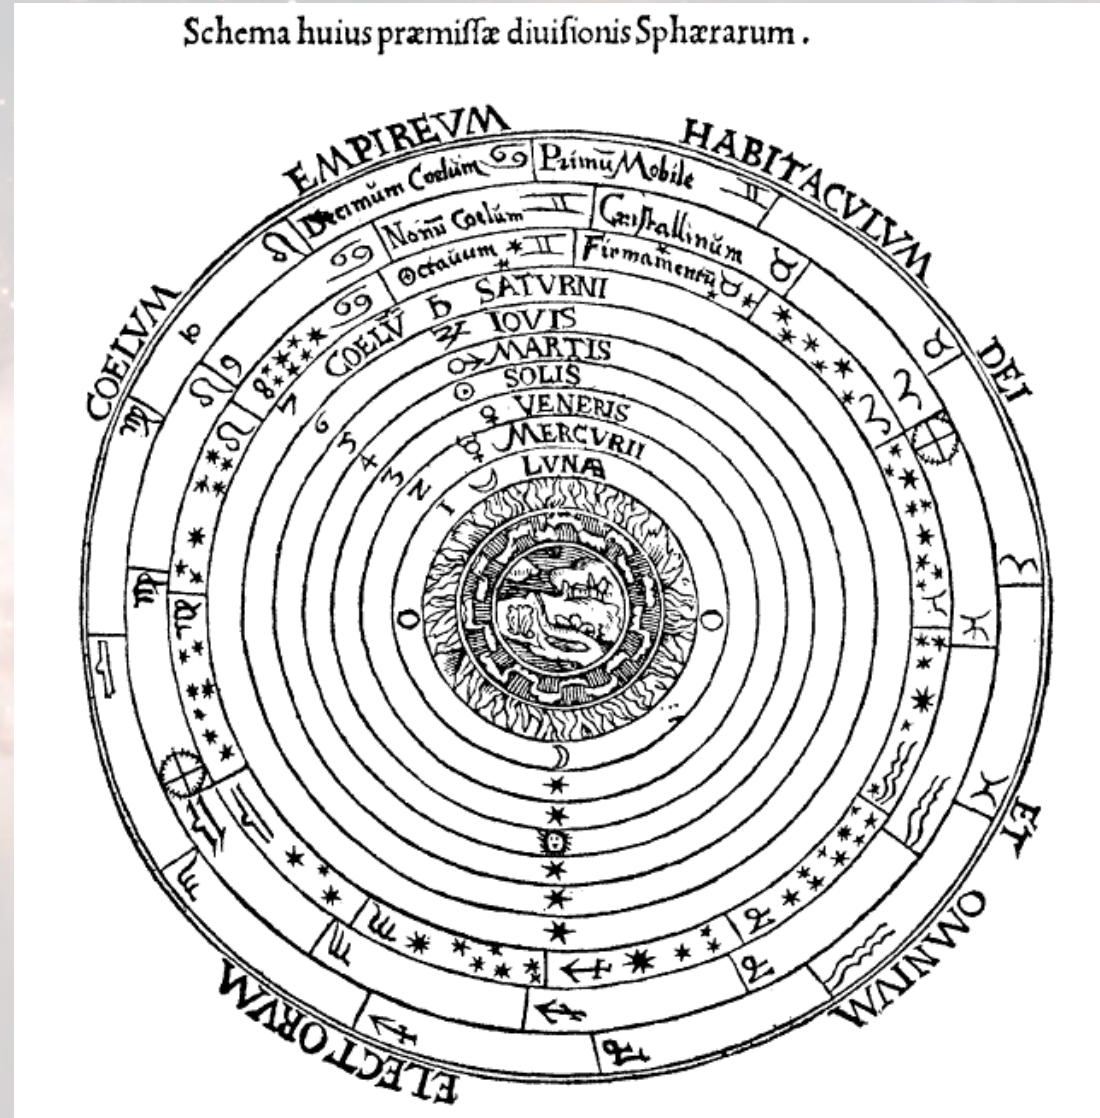 Schema huius præmiſſæ diuiſionis Sphærarum .
COELVM EMPIREVM HABITACVLVM DEI ET OMNIVM ELECTORVM
Decimum Coelum Primū Mobile
Nonū Coelum Criſtallinum
Octauum Firmamentū
COELV̄ SATVRNI
IOVIS
MARTIS
SOLIS
VENERIS
MERCVRII
LVNÆ
10
9
8
7
6
5
4
3
2
1